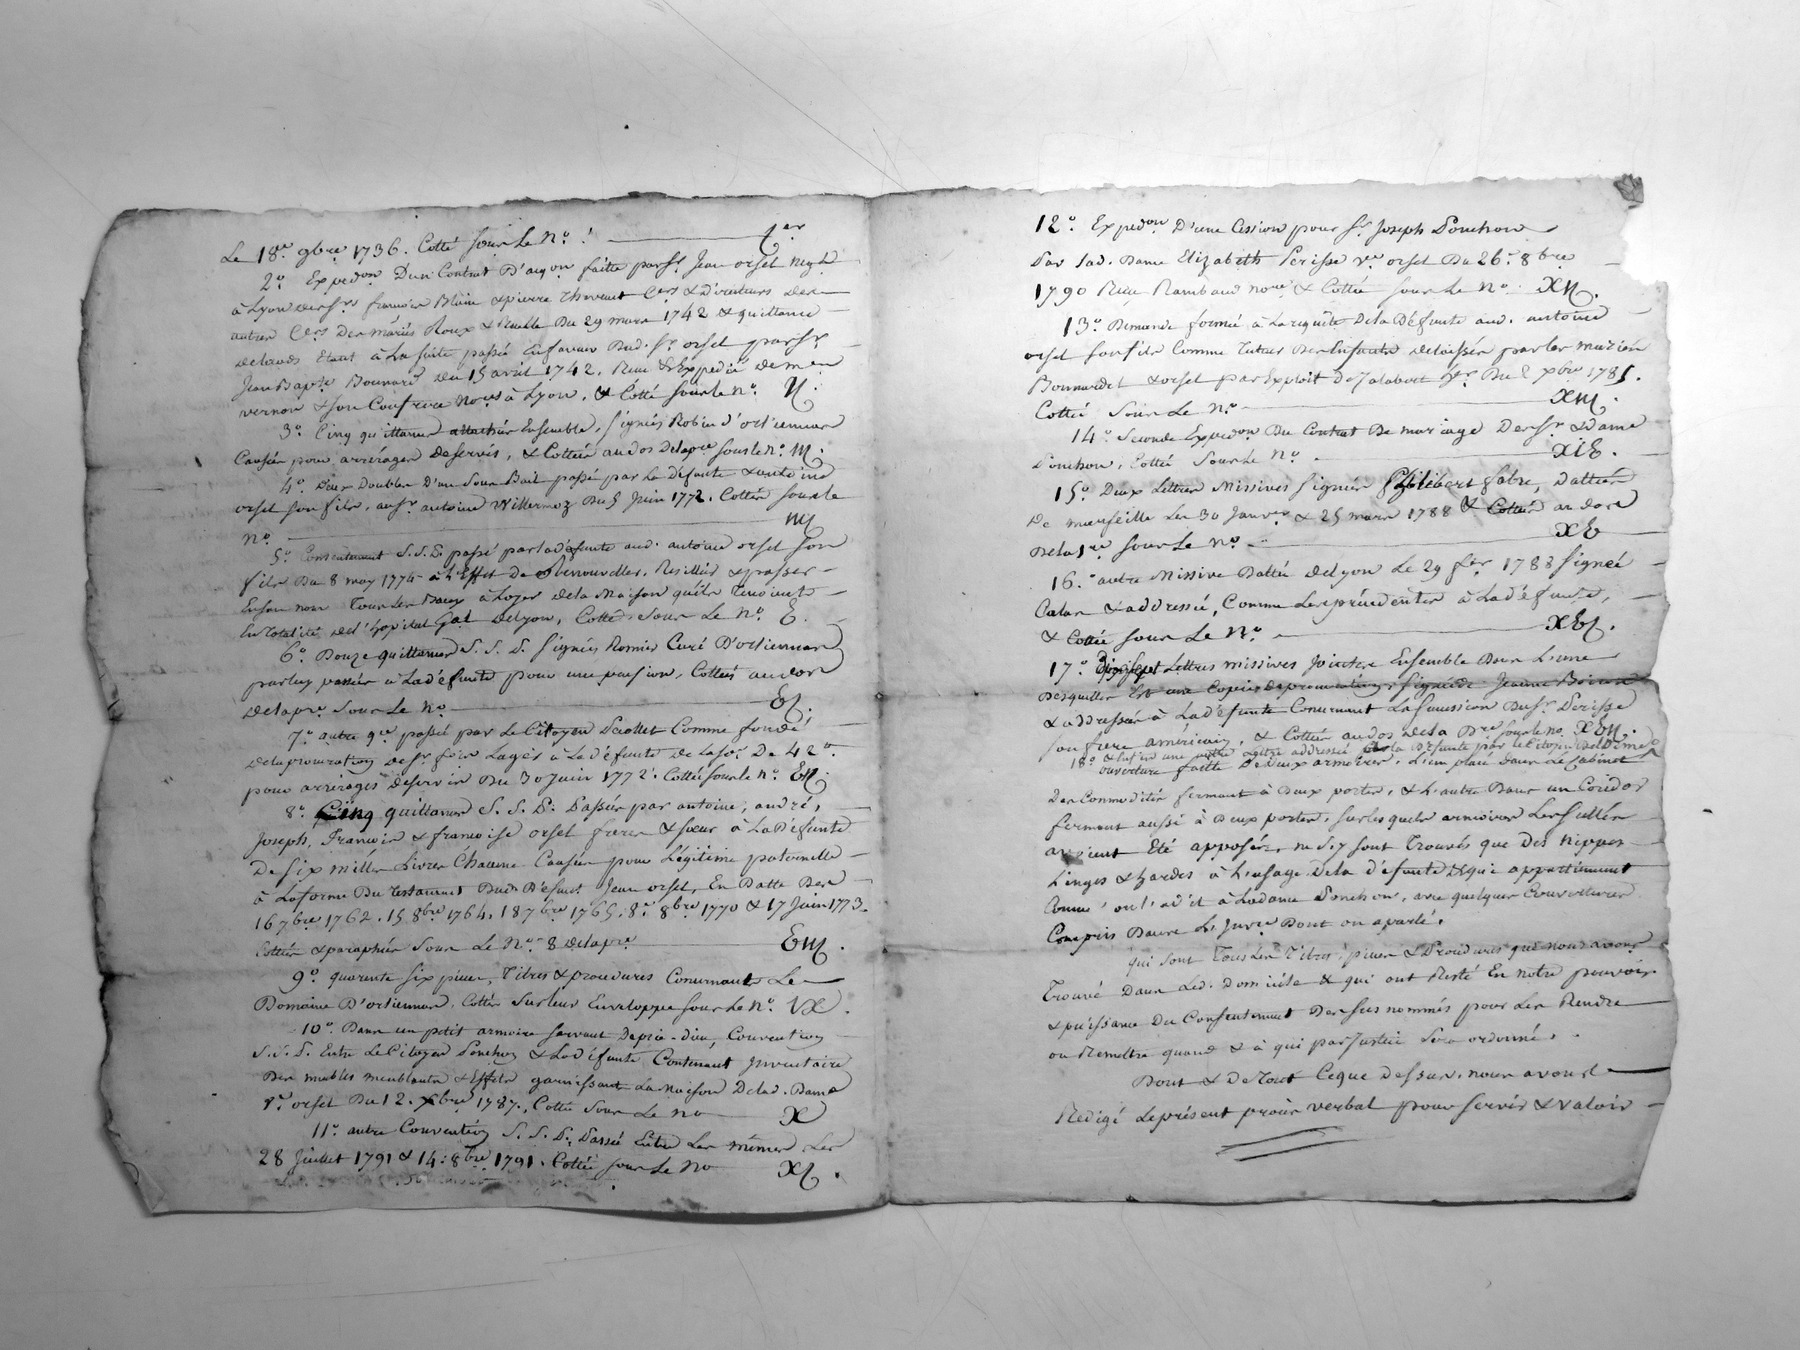 Le 18.e 9bre 1736. Cotté sous Le N.o 1.er
2.o Expedon D'un Contrat D'acqon faitte par Sr. Jean orsel negt
à Lyon des Srs françois Blain & pierre Thevenet Cers & Directeurs des
autres Cers Des mariés Roux & Du 29 mars 1742 & quittance
étant à La suite passée En faveur Dud. Sr orsel par Sr
Jean Bapte Bonnard du 15 avril 1742. Reçu & Expedié de men
vernon & son Confrere Nores à Lyon, & Cotté sous le n.o II.
3.o Cinq quittances attachées Ensemble, signés Robin d'ortiennas
Causées pour arrérages De servis, & Cottées au dos De la pre sous le n.o III.
4.o Deux Doubles D'un Sous Bail passé par La Défunte & antoine
orsel son fils, au Sr. antoine Willermoz Du 5 Juin 1772. Cottés sous le
N.o IIII
5.o Consentement S. S. P. passé par la défunte aud. antoine orsel son
fils Du 8 may 1774 à L'Effet De Renouveller, Resillier & passer
En son nom Tous Les Baux à Loyer de la Maison qu'elle Tenoit
En Totalité de L'hopital Gal de Lyon, Cotté Sous Le N.o V.
6.o Douze quittances S. S. P. Signés Romier Curé D'ortiennas
par luy passées à La défunte pour une pension, Cottées au dos
de la pre Sous Le N.o VI.
7.o autre qce passée par Le Citoyen Comme fondé
de la procuration de Sr Lagès à La défunte de La Soe De 42tt
pour arrérages De servis Du 30 Juin 1772. Cottée sous le n.o VII.
8.o Cinq quittances S. S. P. Passées par antoine, andré,
Joseph, François & françoise orsel freres & sœur à La Défunte
De Six mille Livres Chacune Causées pour Légitime paternelle
à La forme Du Testament Dud. Défunt Jean orsel, En Datte Des
16 7bre 1762, 15 8bre 1764, 18 7bre 1765, 8.e 8bre 1770 & 17 Juin 1773.
Cottées & paraphées Sous Le N.o 8 de la pre VIII.
9.o quarente six pieces, Titres & procedures Concernants Le
Domaine D'ortiennas, Cottés Sur leur Enveloppe sous Le N.o IX.
10.o Dans un petit armoire servant De prie-dieu, Convention
S. S. P. Entre Le Citoyen Ponchon & La défunte Contenant Inventaire
Des meubles meublants & Effets garnissant La Maison De lad. Dame
Ve. orsel Du 12. Xbre 1787., Cotté Sous Le No X
11.o autre Convention S. S. P. Passée Entre Les mêmes Les
28 Juillet 1791 & 14: 8bre 1791. Cottée sous Le No XI.
12.o Expedon D'une Cession pour Sr. Joseph Ponchon
Par Lad. Dame Elizabeth Perisse Ve orsel Du 26.e 8bre
1790 Reçu Rambaud nore & Cottée sous Le No. XII.
13.o Demande formée à La requête De La Défunte aud. antoine
orsel son fils Comme Tuteur Des Enfants delaissés par les mariés
Bonnardel & orsel par Exploit De Jalabert Du 2 Xbre 1785.
Cottée Sous Le N.o XIII.
14.o Seconde Expedon Du Contrat De mariage Des Sr & Dame
Ponchon, Cottée Sous Le N.o XIV.
15.o Deux Lettres Missives Signées Philibert fabre, Dattées
De marseille Les 30 Janver & 25 mars 1788 & Cottées au dos
De La 1re Sous Le N.o XV
16.o autre Missive Dattée de Lyon Le 29 fer 1788 signée
Catan & addressée, Comme Les précédentes à La défunte,
& Cottée sous Le N.o XVI.
17.o Dix sept Lettres missives Jointes Ensemble Dans L'une
Desquelles Est une Copie De procuration, Signée De Jeanne
& addressées à La défunte Concernant La succession Du Sr. Perisse
son frere américain, & Cottées au dos de la Pre sous le no. XVII.
18.o & une autre Lettre addressée à la Défunte par le Citoyen
ouverture faitte De Deux armoires, L'un placé dans Le Cabinet
Des Commodités fermant à Deux portes, & L'autre Dans un Coridor
fermant aussi à Deux portes, sur lesquels armoires Les scellés
avoient Eté apposés, ne S'y sont Trouvés que Des Nippes
Linges & hardes à L'usage De la défunte & qui appartiennent
Comme on l'a dit à La dame Ponchon, avec quelques Couvertures
Compris Dans L'Invre Dont on a parlé.
qui sont Tous Les Titres, pieces & Procedures que nous avons
Trouvé Dans Led. Domicile & qui ont Resté En notre pouvoir
& puissance Du Consentement Des sus nommés pour Les Rendre
ou Remettre quand & à qui par Justice Sera ordonné.
Dont & De Tout Ce que Dessus, nous avons
Redigé Le présent procès verbal pour servir & valoir